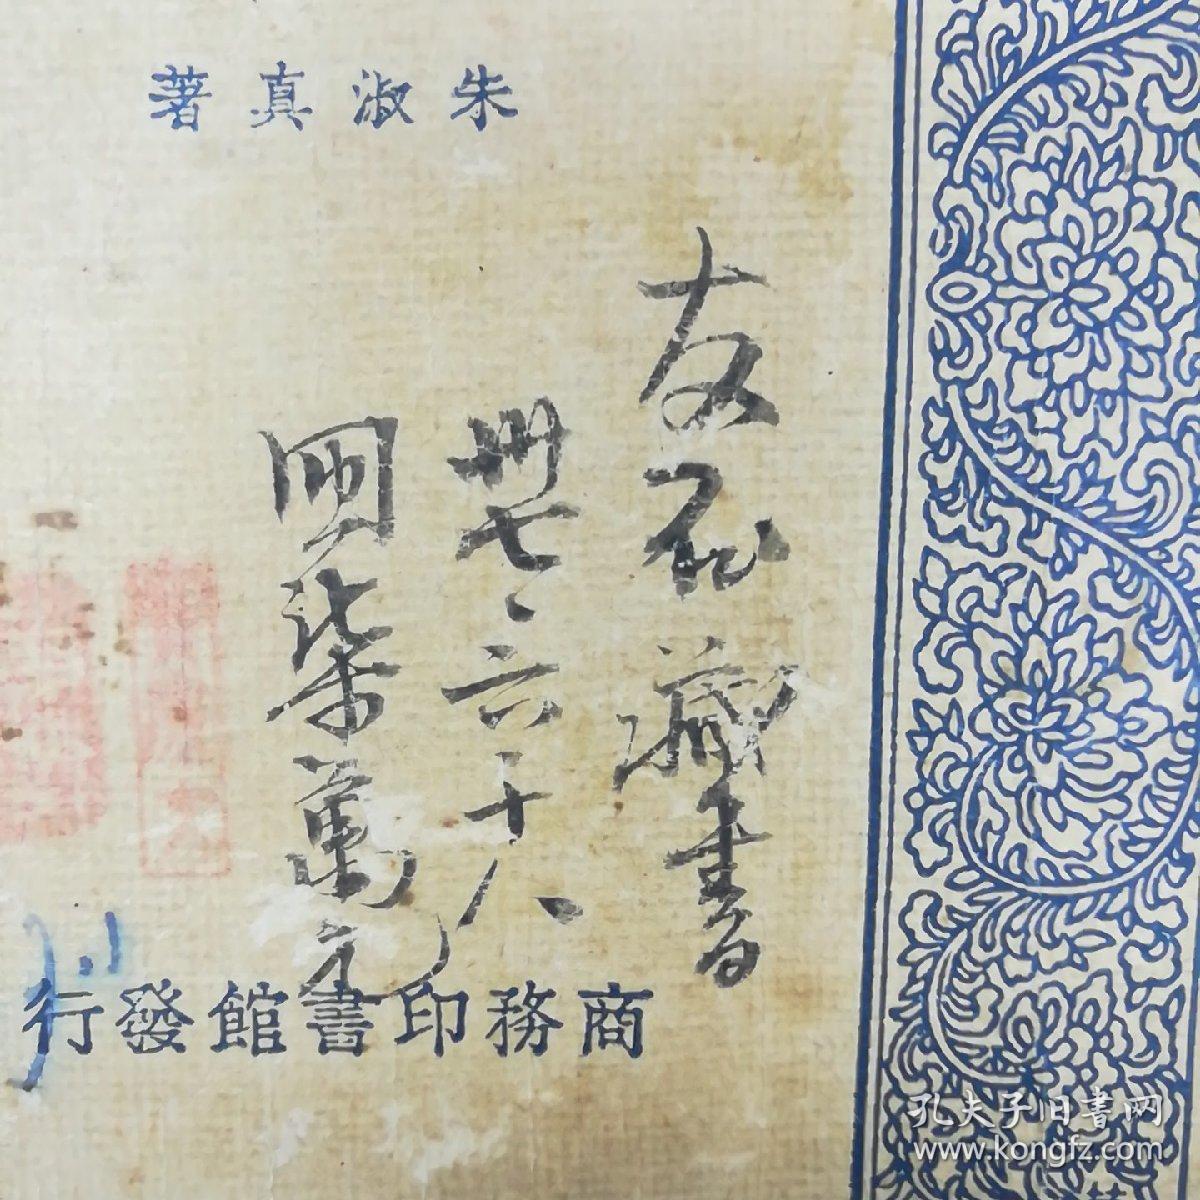 朱淑真著
友石藏書
卅七、六、十八
國幣柒萬元
商務印書館發行
孔夫子旧書网
www.kongfz.com